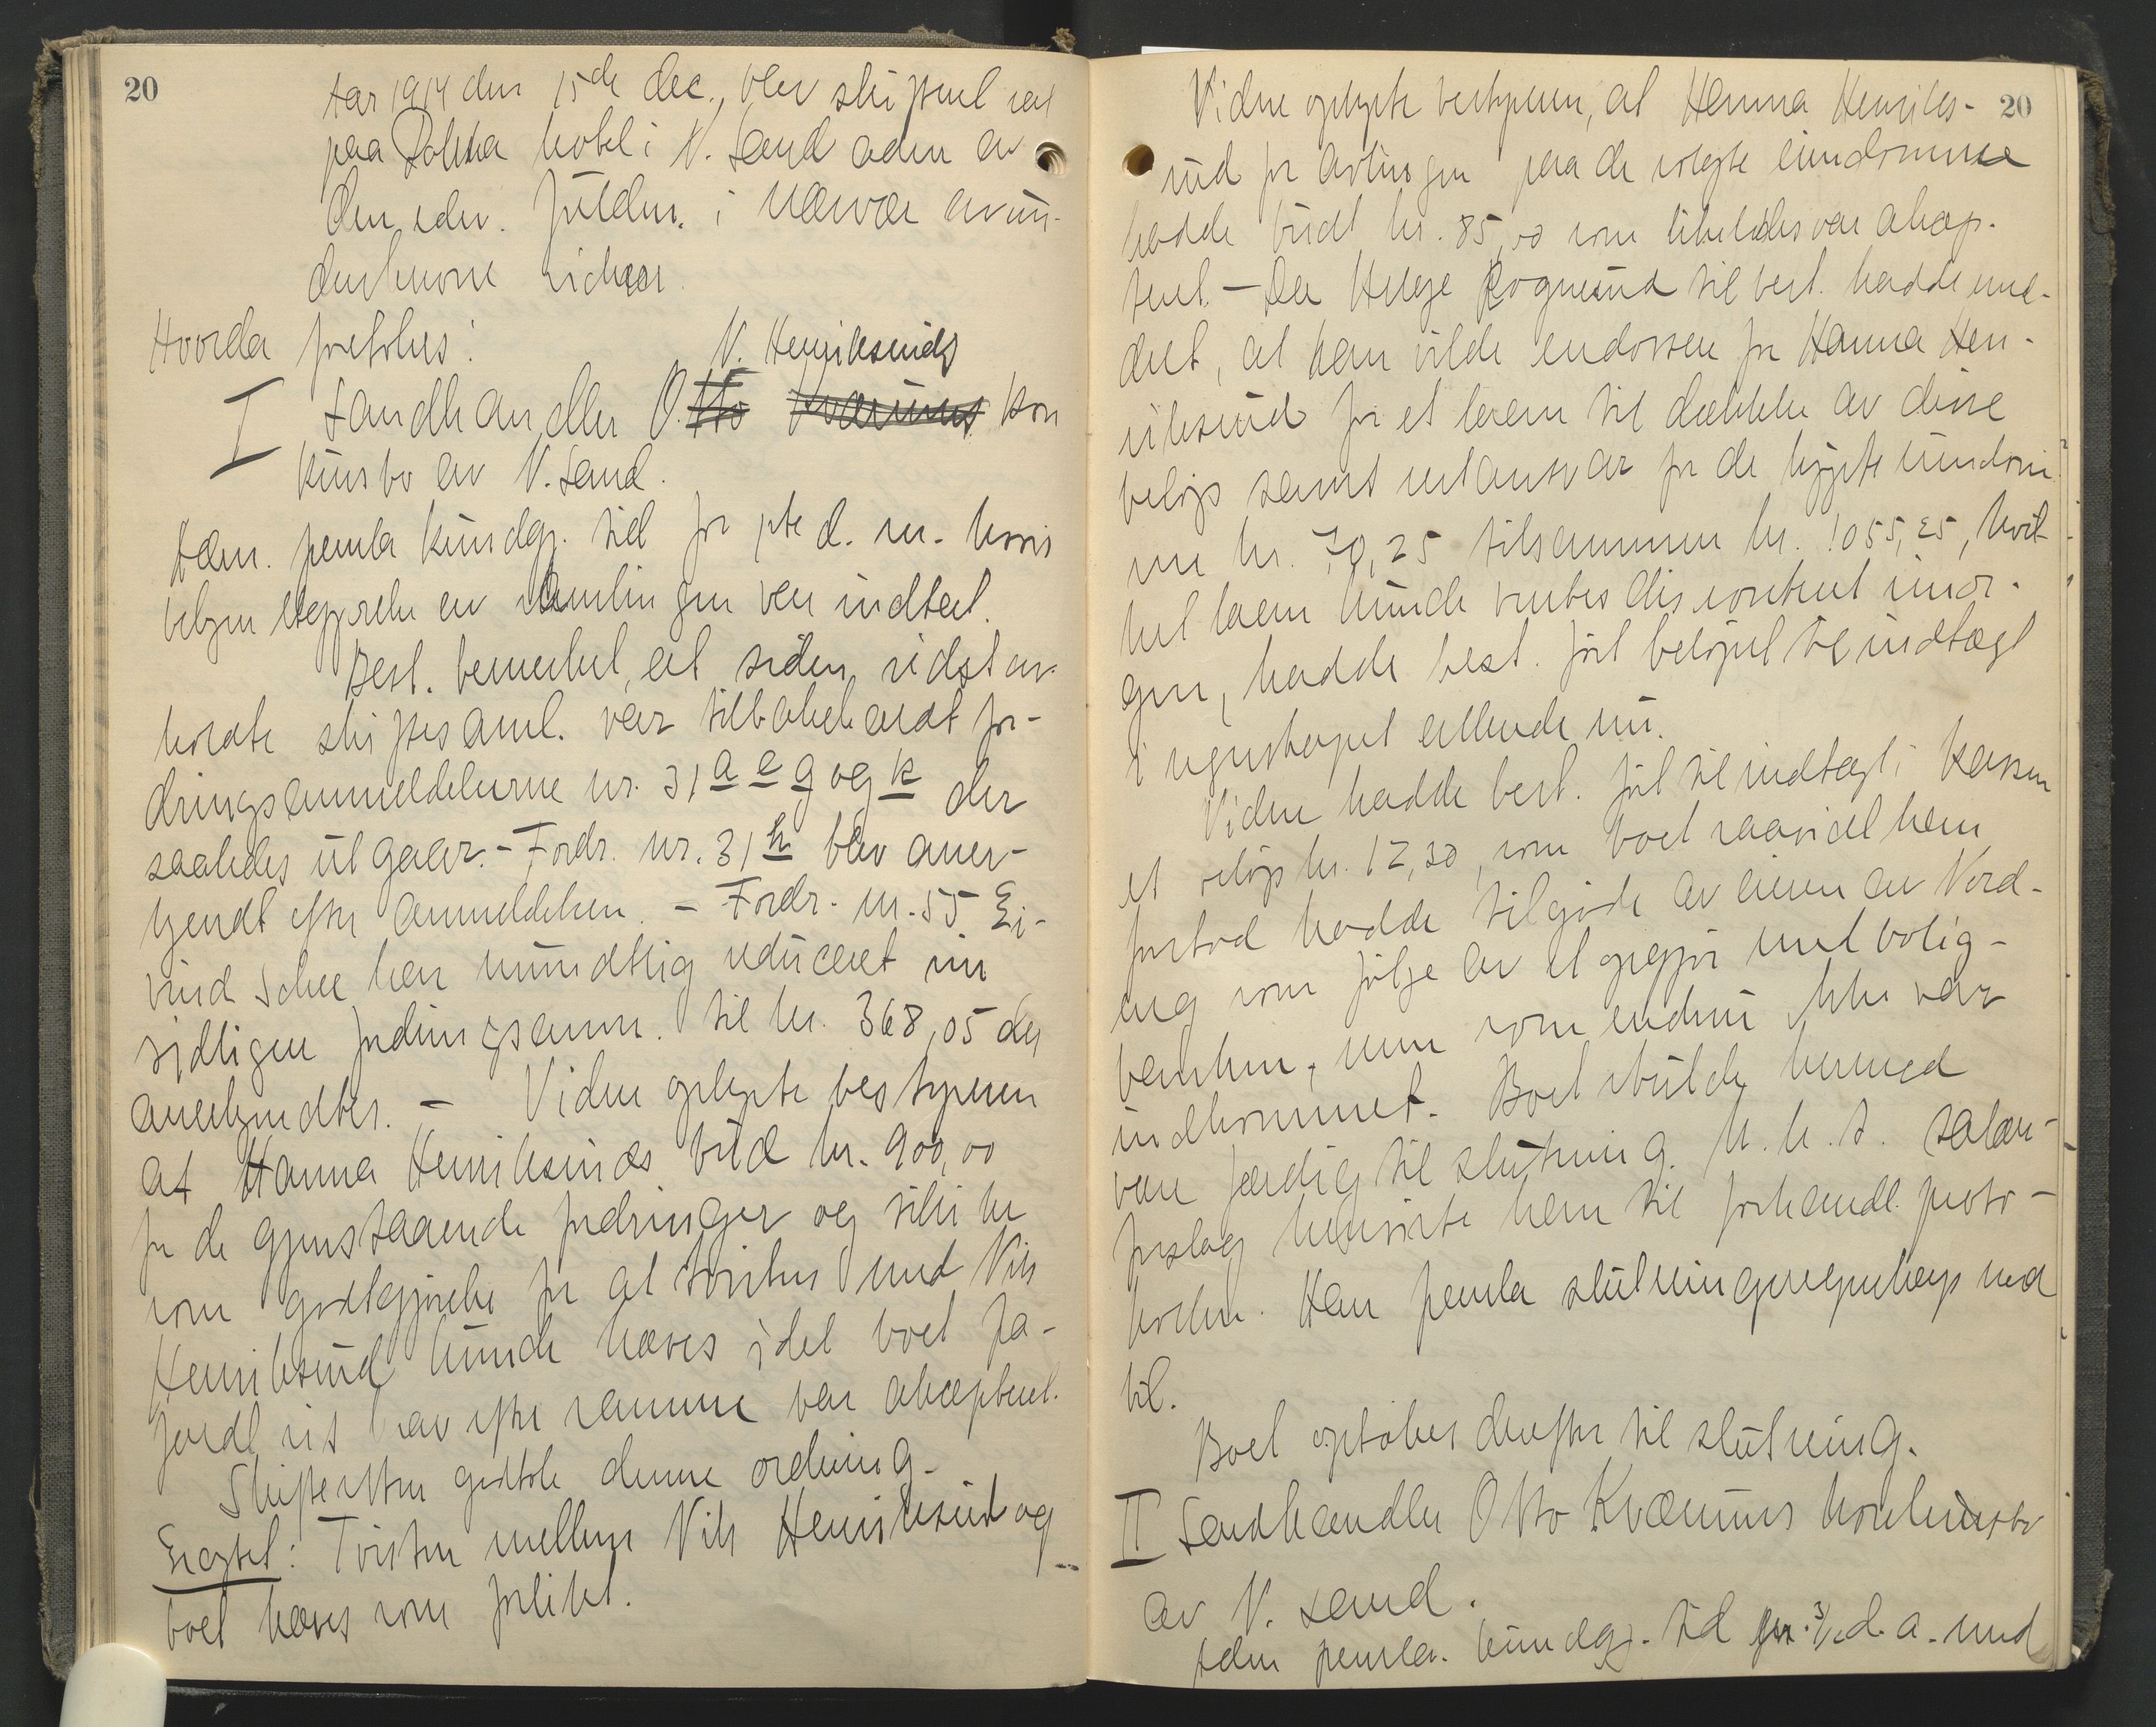 20
Aar 1914 den 15de dec. blev skifteret sat
paa Rokna hotel i N. Land aden av
den edsv. fuldm. i nærvær av un-
derskrevne vidner.
Hvorda foretokes:
N. Henriksruds
I Landhandler Otto Kværnums kon
kursbo av N. Land.
tem. fremla kundgj. tid for pte d. m. hvoris
belgen av samlingen var indtat.
Best. bemerket, at siden sidst av-
holdte skiftesaml. var tilbakekaldt for-
dringsanmeldelserne nr. 31 a e g og k der
saaledes utgaar. - Fordr. nr. 31 h blev aner-
kjendt efter anmeldelsen. - Fordr. nr. 55 Ei-
vind Schee har mundtlig reduceret sin
fordringsanm. til kr. 368,05 der
anerkjendtes. - Videre oplyste bestyreren
at Hanna Henriksruds bud kr. 900,00
for de gjenstaaende fordringer og likesaa
som godtgjørelse for at tvisten med Nils
Henriksrud kunde hæves idet boet fra-
faldt sit krav efter samme var akceptert.
Skifteretten godtok denne ordning.
Eragtet: Tvisten mellem Nils Henriksrud og
boet hæves som forlikt.
20
Videre oplyste bestyreren, at Hanna Henriks-
rud for avlingen paa de solgte eiendomme
hadde budt kr. 85,00 som likeledes var aksep-
tert. - Da Helge Rognerud til best. hadde med-
delt, at han vilde endossere for Hanna Hen-
riksrud for et laan til dækkelse av disse
beløp samt restansvar for de kjøpte eiendom
me kr. 70,25 tilsammen kr. 1055,25, hvil-
ket laan kunde ventes diskontert imor-
gen, hadde best. ført beløpet til indtægt
i regnskapet allerede nu.
Videre hadde best. ført til indtægt i kassen
et beløp kr. 12,30, som boet saavidt han
forstod hadde tilgode av eieren av Nord-
eng som følge av et opgjør med bolig-
banken, men som endnu ikke var
indkommet. Boet skulde hermed
være færdig til slutning. M. h. t. salær-
forslag henviste han til forhandl. proto-
kollen. Han fremla slutningsregnskap med
bil.
Boet optokes derefter til slutning.
II Landhandler Otto Kværnums konkursbo
av N. Land.
Adm fremla. kundgj. tid for 3/12 d. a. med